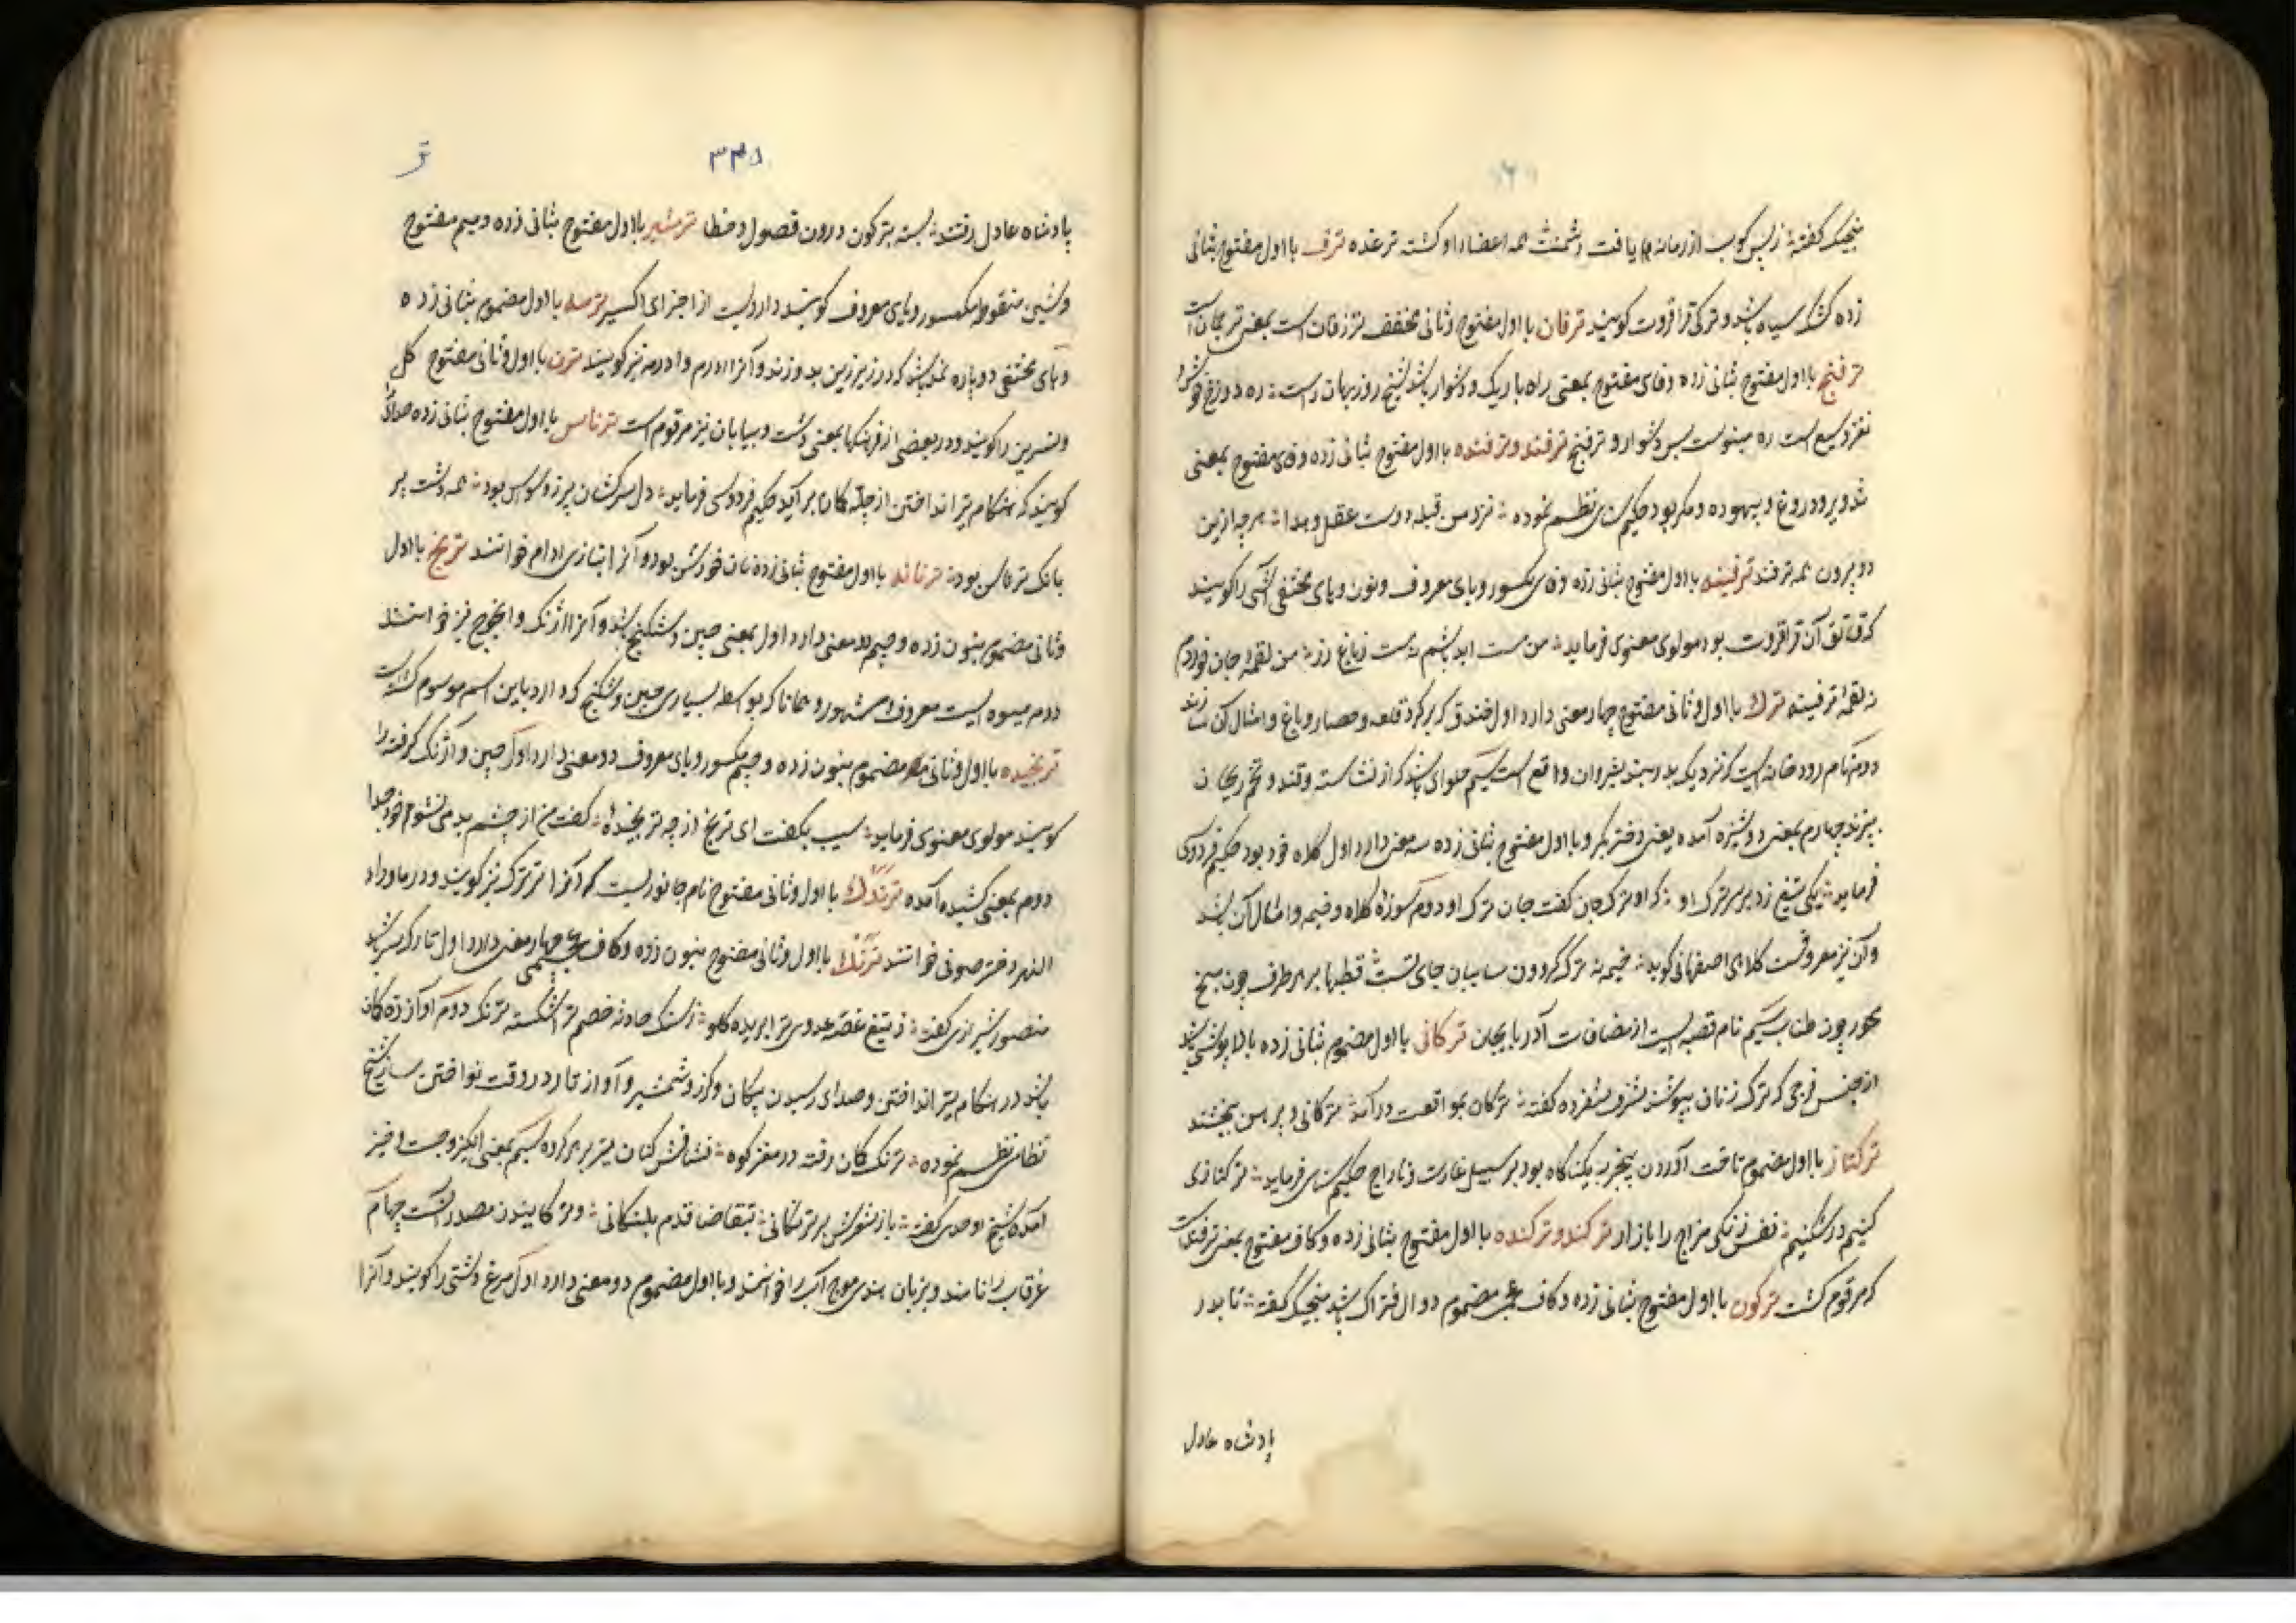 منجیک گفته زبس کوب از زمانه یافت دشمنت همه اعضاء او گشته ترغده ترف با اول مفتوح بثانی
زده کشک سیاه باشد و ترکی قراقروت گویند ترفان با اول مفتوح وثانی مخفف ترزفان است بمعنی ترجمان است
ترفنج با اول مفتوح بثانی زده وفای مفتوح بمعنی راه باریک و دشوار باشد شیخ روزبهان راست ره دوزخ خوش و
نغز وسیع است ره مینوست بس دشوار و ترفنج ترفند و ترفنده با اول مفتوح بثانی زده وفای مفتوح بمعنی
دروغ و بیهوده و مکر بود حکیم سنائی نظم نموده نزد من قبله دوست عقل و هدا هرچه ازین
دو برون همه ترفند ترفینه با اول مفتوح بثانی زده وفای مکسور ویای معروف ونون وهای مختفی آشی را گویند
که قاتق آن قراقروت بود مولوی معنوی فرماید من مست ابد باشم نه مست زباغ رز من لقمه جان خوردم
نه لقمه ترفینه ترک با اول وثانی مفتوح چهار معنی دارد اول خندق که بر گرد قلعه وحصار وباغ وامثال آن سازند
دوم نام رودخانه ایست که نزدیک بدربند شیروان واقع است سیم حلوای باشد که از نشاسته وقند وتخم ریحان
بپزند چهارم بمعنی دوشیزه آمده یعنی دختر بکر وبا اول مفتوح بثانی زده سه معنی دارد اول کلاه خود بود حکیم فردوسی
فرماید یکی تیغ زد بر سر ترک او که او ترک جان گفت جان ترک او دوم سوزه کلاه وخیمه وامثال آن باشد
وآن نیز معروفست کلامی اصفهانی گوید خیمه نه ترک گردون سایبان جای تست قطبها بر هر طرف چون میخ
محور چون طناب سیم نام قصبه ایست از مضافات آذربایجان ترکانی با اول مضموم بثانی زده بالاپوشی باشد
از جنس فرجی که ترک زنان بپوشند شرف شفروه گفته ترکان بمواقعت درآمد ترکانی و پیرهن ببخشند
ترکتاز با اول مضموم تاخت آوردن بیخبر بیکناگاه بود بر سبیل غارت وتاراج حکیم سنائی فرماید ترکتازی
کنیم در شکنیم نفس زنگی مزاج را بازار ترکند و ترکنده با اول مفتوح بثانی زده وکاف مفتوح بمعنی ترفند است
که مرقوم گشت ترکون با اول مفتوح بثانی زده وکاف عجمی مضموم دوال فتراک باشد منجیک گفته تا بدر
پادشاه عادل
تر
۳۳۵
پادشاه عادل رفت بسته بترکون درون قصول وخطا ترمشیر با اول مفتوح بثانی زده ومیم مفتوح
وشین منقوطه مکسور ویای معروف گویند داروییست از اجزای اکسیر ترمه با اول مضموم بثانی زده
وهای مختفی دوپاره نمد باشد که در زیر زین بدوزند وآنرا ادرم وادرمه نیز گویند ترن با اول وثانی مفتوح گل
ونسرین را گویند ودر بعضی از فرهنگها بمعنی دشت وبیابان نیز مرقوم است ترناس با اول مفتوح بثانی زده صدائی
گویند که هنگام تیر انداختن از چله کمان برآید حکیم فردوسی فرماید دل سرکشان پر ز وسواس بود همه دشت پر
بانگ ترناس بود ترنانه با اول مفتوح بثانی زده نان خورش بود وآنرا بتازی ادام خوانند ترنج با اول
وثانی مضموم بنون زده وجیم دو معنی دارد اول بمعنی چین وشکنج باشد وآنرا اژنگ وانجوخ نیز خوانند
دوم میوه ایست معروف ومشهور وهمانا که بواسطه بسیاری چین وشکنج که دارد باین اسم موسوم گشته است
ترنجیده با اول وثانی مضموم بنون زده وجیم مکسور ویای معروف دو معنی دارد اول چین واژنگ گرفته را
گویند مولوی معنوی فرماید سیب بگفت ای ترنج از چه ترنجیده گفت من از چشم بد می نشوم خودنما
دوم بمعنی کشیده آمده ترندک با اول وثانی مفتوح نام جانوریست که آنرا ترترک نیز گویند ودر ماوراء
النهر دختر صوفی خوانند ترنگ با اول وثانی مفتوح بنون زده وکاف عجمی چهار معنی دارد اول تارک سر باشد
منصور شیرازی گفته ز تیغ غصه عدوی ترا بریده گلو ز سنگ حادثه خصم ترا شکسته ترنگ دوم آواز زه کمان
باشد در هنگام تیر انداختن وصدای رسیدن پیکان وگرز وشمشیر وآواز تار در وقت نواختن ساز شیخ
نظامی نظم نموده ترنگ کمان رفته در مغز کوه فشافش کنان تیر بر هر گروه سیم بمعنی انگیز وجست وخیز
آمده شیخ اوحدی گفته باز شورش بر ترنگانی بتقاضا قدم بلنگانی وترنگانیدن مصدر آنست چهارم
غرقاب را نامند وبزبان هندی موج آب را خوانند وبا اول مضموم دو معنی دارد اول مرغ دشتی را گویند وآنرا